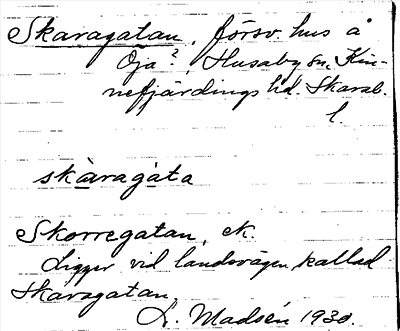 Skaragatan, försv. hus å
Öja?, Husaby sn, Kin-
nefjärdings hd. Skarab.
l.
skàragàta
Skorregatan, ek.
Ligger vid landsvägen, kallad
Skaragatan
L. Madsén 1930.